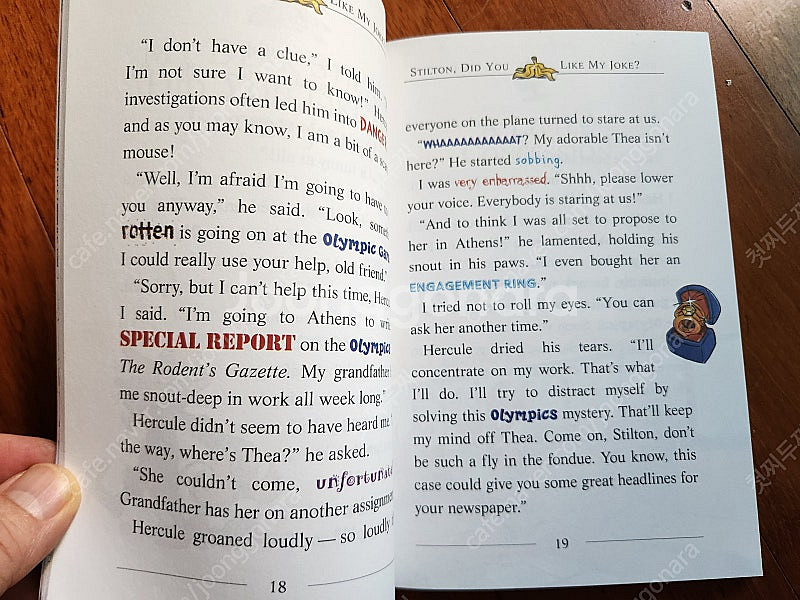 LIKE MY JOKE?
"I don't have a clue," I told him.
I'm not sure I want to know!"
investigations often led him into
and as you may know, I am a bit of a
mouse!
"Well, I'm afraid I'm going to have
you anyway," he said. "Look,
rotten is going on at the Olympic
I could really use your help, old friend."
"Sorry, but I can't help this time,
I said. "I'm going to Athens to
SPECIAL REPORT on the Olympics
The Rodent's Gazette. My grandfather
me snout-deep in work all week long."
Hercule didn't seem to have heard me
the way, where's Thea?" he asked.
"She couldn't come,
Grandfather has her on another
Hercule groaned loudly — so loudly
18
STILTON, DID YOU LIKE MY JOKE?
everyone on the plane turned to stare at us.
"WHAAAAAAAAAAT? My adorable Thea isn't
here?" He started sobbing.
I was very embarrassed. "Shhh, please lower
your voice. Everybody is staring at us!"
"And to think I was all set to propose to
her in Athens!" he lamented, holding his
snout in his paws. "I even bought her an
ENGAGEMENT RING."
I tried not to roll my eyes. "You can
ask her another time."
Hercule dried his tears. "I'll
concentrate on my work. That's what
I'll do. I'll try to distract myself by
solving this Olympics mystery. That'll keep
my mind off Thea. Come on, Stilton, don't
be such a fly in the fondue. You know, this
case could give you some great headlines for
your newspaper."
19
joonggonara